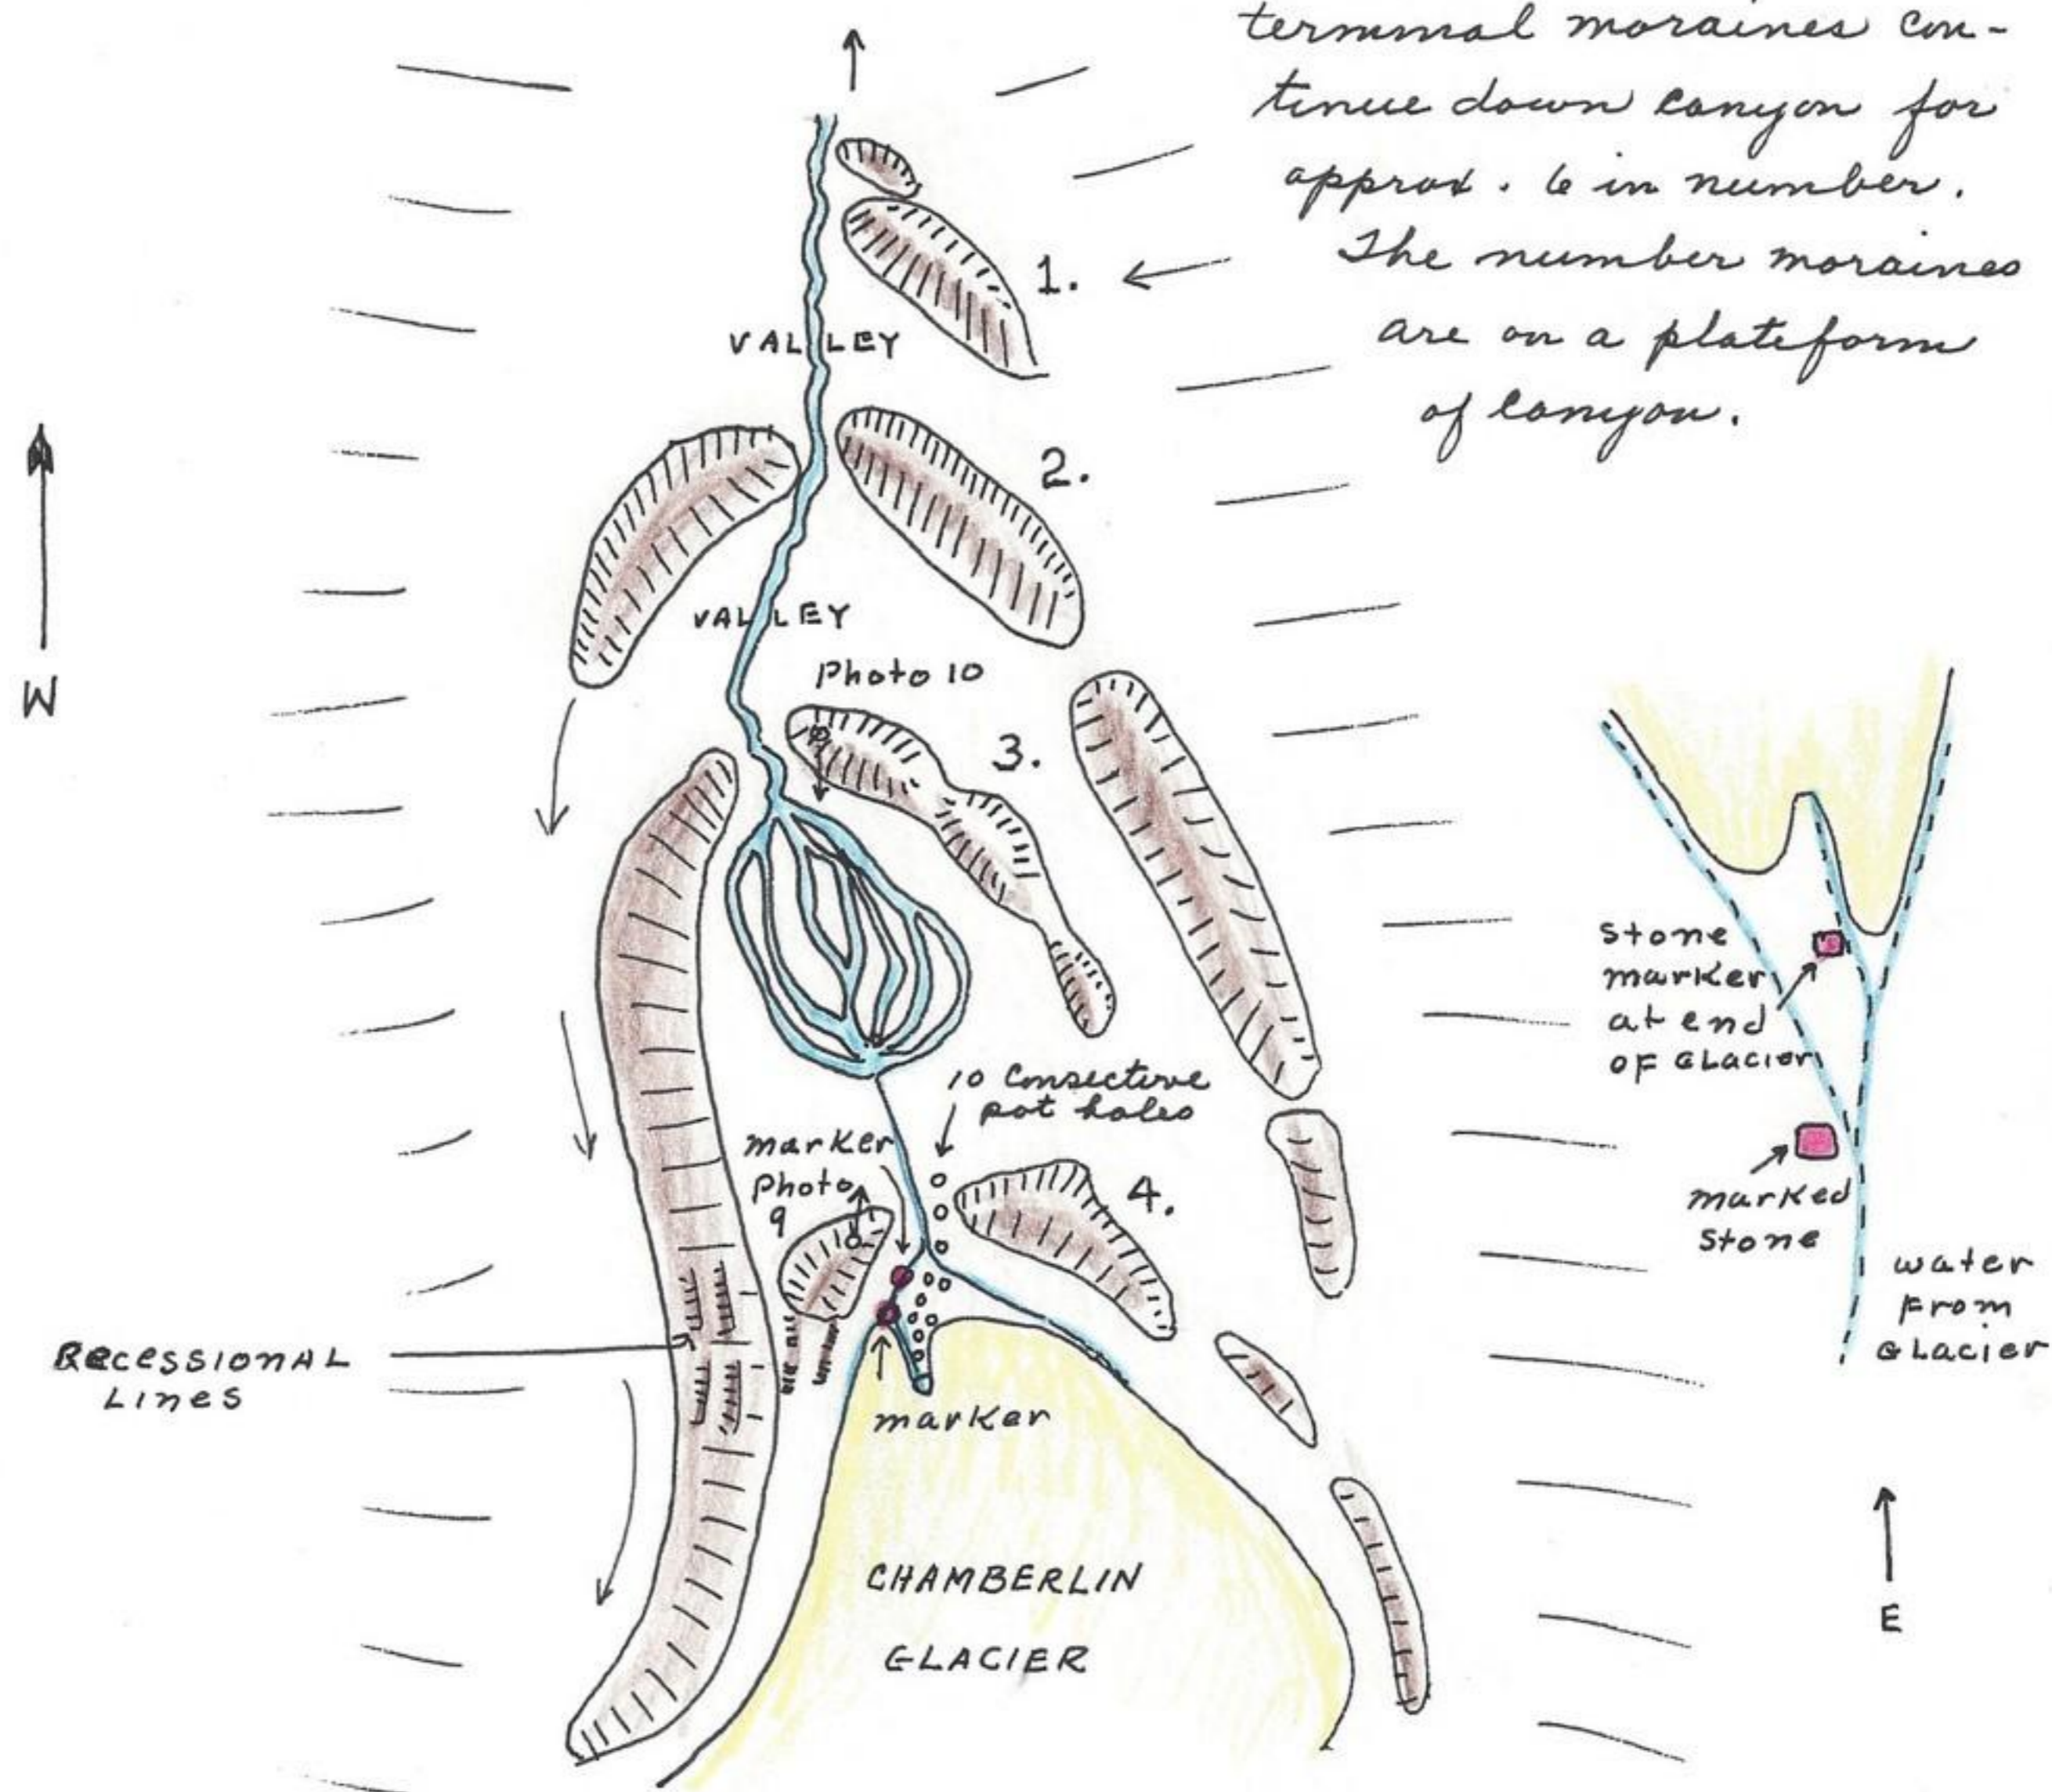 terminal moraines con-
tinue down canyon for
approx. 6 in number.
The number moraines
are on a plateform
of canyon.
1.
VALLEY
2.
W
VALLEY
Photo 10
3.
10 Consective
pot holes
marker
Photo
9
4.
RECESSIONAL
LINES
marker
CHAMBERLIN
GLACIER
Stone
marker
at end
OF GLACIER
marked
Stone
water
From
GLACIER
E